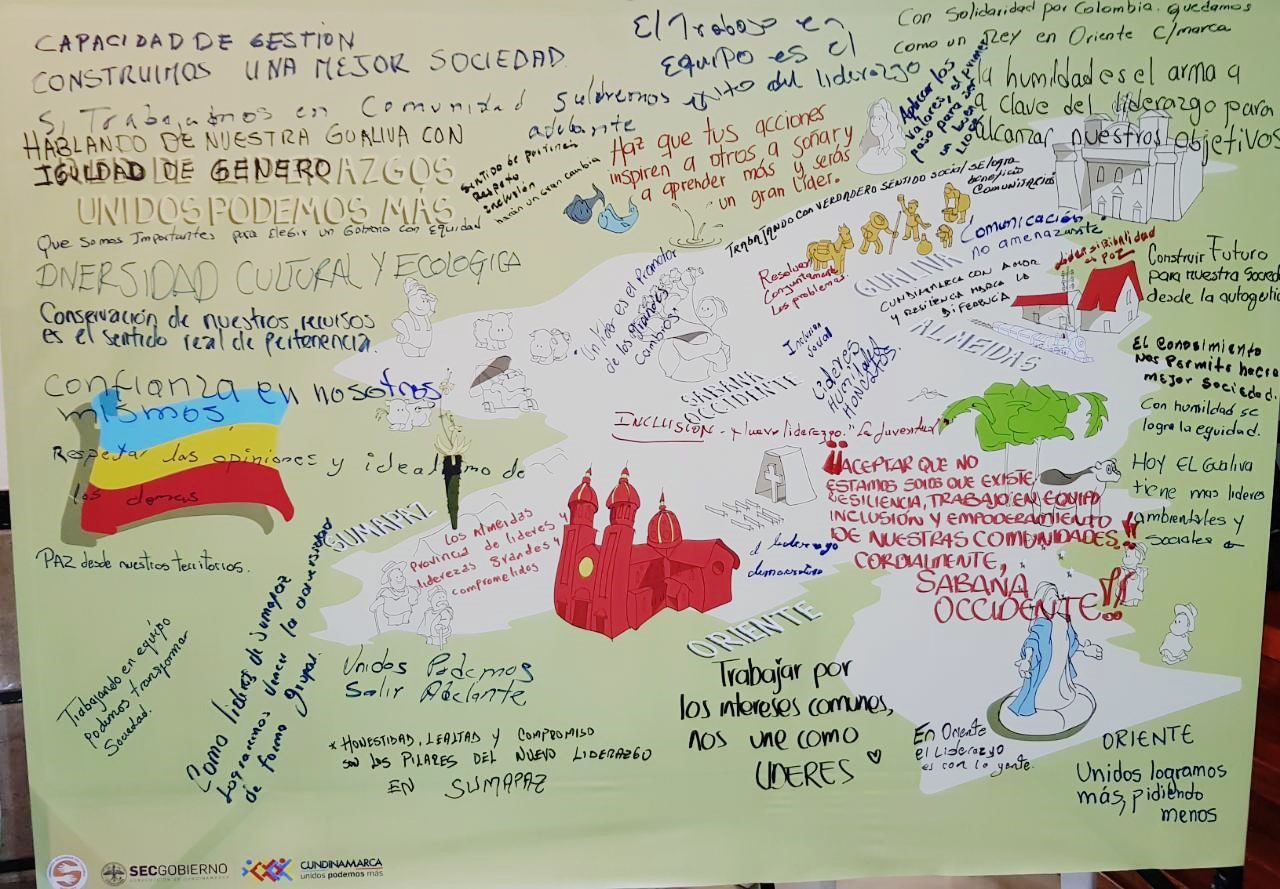 CAPACIDAD DE GESTION
CONSTRUIMOS UNA MEJOR SOCIEDAD
Si Trabajamos en Comunidad saldremos
adelante
HABLANDO DE NUESTRA GUALIVA CON
IGULDAD DE GENERO
AZGOS
UNIDOS PODEMOS MÁS
Que somos Importantes para Elegir un Gobierno con Equidad
DIVERSIDAD CULTURAL Y ECOLOGICA
Conservación de nuestros recursos
es el sentido real de pertenencia.
confianza en nosotros
mismos
Respetar las opiniones y idealismo de
los demas
PAZ desde nuestros territorios.
Trabajando en equipo
podemos transformar
Sociedad.
Como lideres de Sumapaz
Lograremos vencer la adversidad
de forma grupal.
El Trabajo en
equipo es el
exito del liderazgo
Sentido de pertinencia
Respeto
inclusión
harán un gran cambio
Haz que tus acciones
inspiren a otros a soñar y
a aprender más y serás
un gran Líder.
Aplicar los
valores, el primer
paso para ser
un buen
Lider
Con Solidaridad por Colombia. quedamos
como un Rey en Oriente C/marca
la humildad es el arma a
a clave del liderazgo para
alcanzar nuestros objetivos
TRABAJANDO CON VERDADERO SENTIDO SOCIAL SE LOGRA
BENEFICIO
COMUNITARIO
Comunicación
no amenazante
Resolver
Conjuntamente
Los problemas
GUALIVA
CUNDINAMARCA CON AMOR
Y RESILIENCIA MARCA LA
DIFERENCIA
ALMEIDAS
Construir Futuro
para nuestra Socied
desde la autogestio
"Un lider es el Promotor
de los grandes
Cambios"
Inclusion
social
Lideres
HUMILDES
HONESTOS.
SABANA
OCCIDENTE
El conosimiento
nos permite hacer
mejor sociedad.
Con humildad se
logra la equidad.
INCLUSIÓN - nuevo liderazgo. "La Juventud"
"ACEPTAR QUE NO
ESTAMOS SOLOS QUE EXISTE
RESILIENCIA, TRABAJO EN EQUIPO
INCLUSIÓN Y EMPODERAMIENTO
DE NUESTRAS COMUNIDADES."
CORDIALMENTE,
SABANA
OCCIDENTE!!
HOY EL Gualiva
tiene mas lideres
ambientales y
sociales
SUMAPAZ
Los Almeidas
Provincia de lideres y
liderezas grandes y
comprometidos
liderazgo
ORIENTE
Unidos Podemos
Salir Adelante
* HONESTIDAD, LEALTAD Y COMPROMISO
SON LOS PILARES DEL NUEVO LIDERAZGO
EN SUMAPAZ
Trabajar por
los intereses comunes,
nos une como
LIDERES ♡
En Oriente
el Liderazgo
es con la gente.
ORIENTE
Unidos logramos
más, pidiendo
menos
SECGOBIERNO
CUNDINAMARCA
unidos podemos más